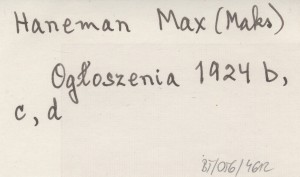 Haneman Max (Maks)
Ogłoszenia 1924 b,
c, d
BJ/016/4612